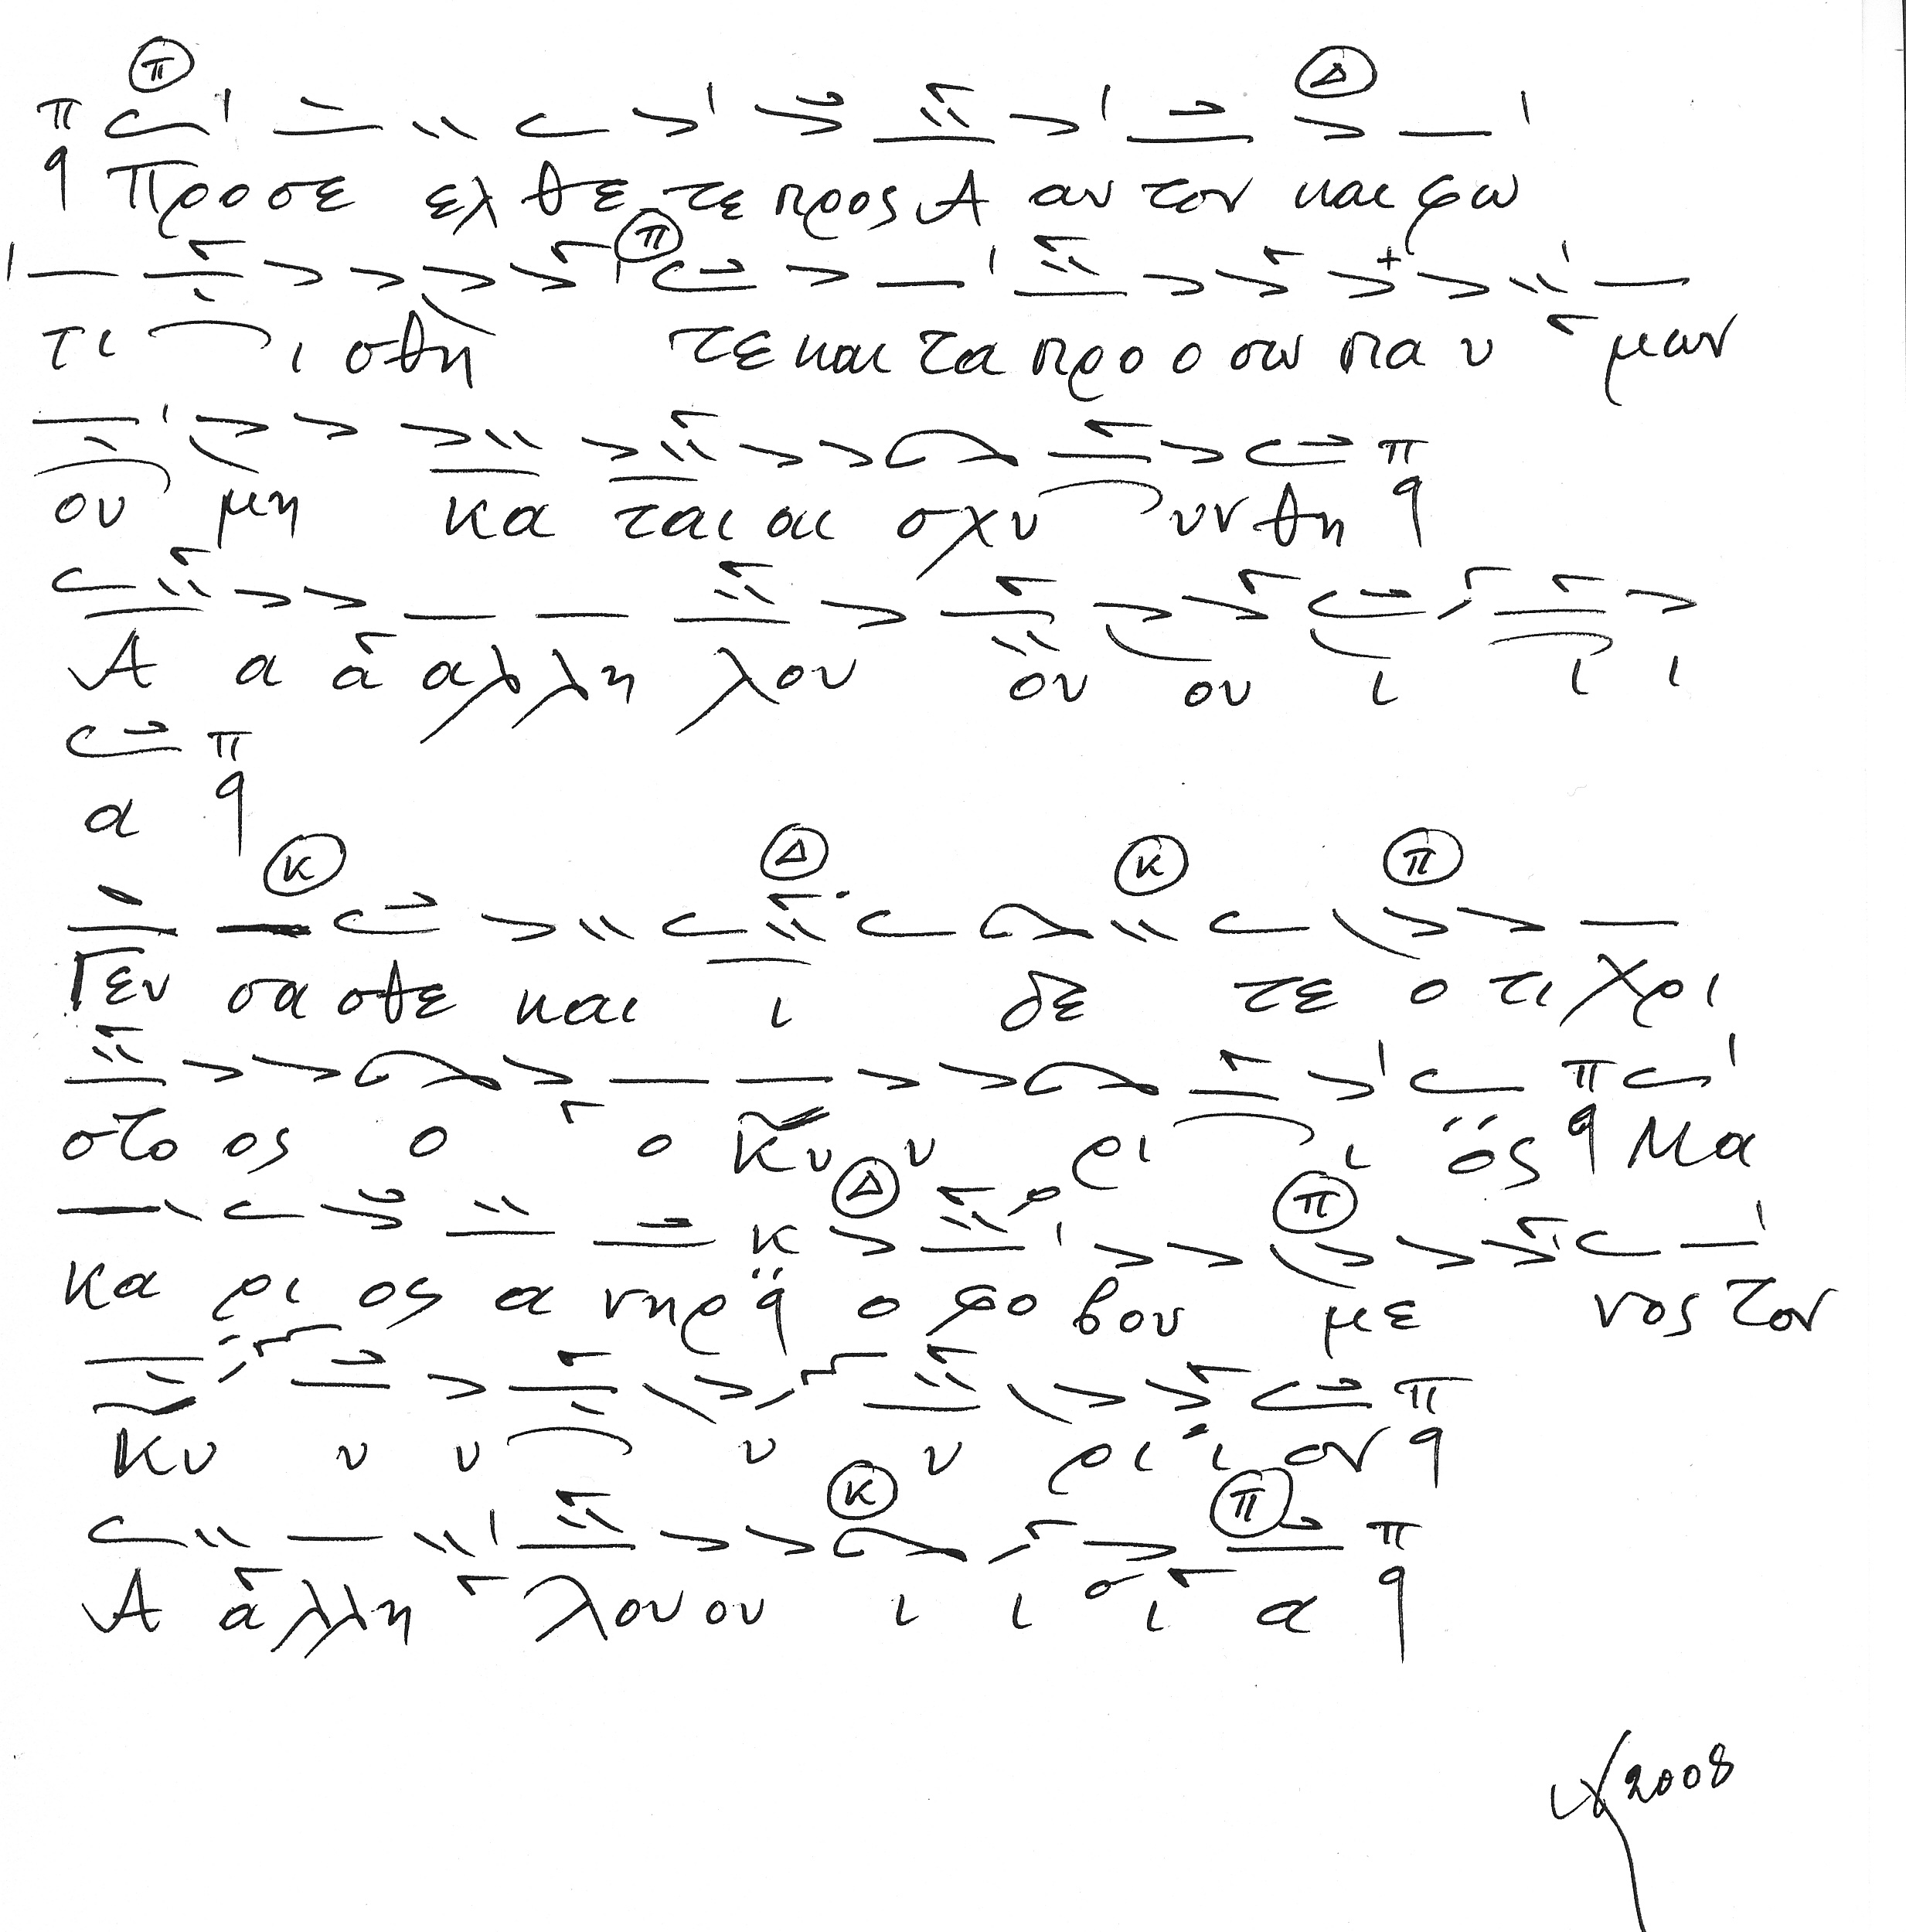 π Δ
π
q Προσε ελ θε τε προς Α αυ τον και φω
π
τι ι σθη τε και τα προ ο σω πα υ μων
π
ου μη κα ται αι σχυ υν θη q
Α α α αλ λη λου ου ου ι ι ι
π
α q
κ Δ κ π
Γευ σα σθε και ι δε τε ο τι Χρι
π
στο ος ο ο Κυ υ ρι ι ος q Μα
Δ π
κ
κα ρι ος α νηρ q ο φο βου με νος τον
π
Κυ υ υ υ υ ρι ι ον q
κ π
π
Α αλ λη λου ου ι ι ι α q
2008